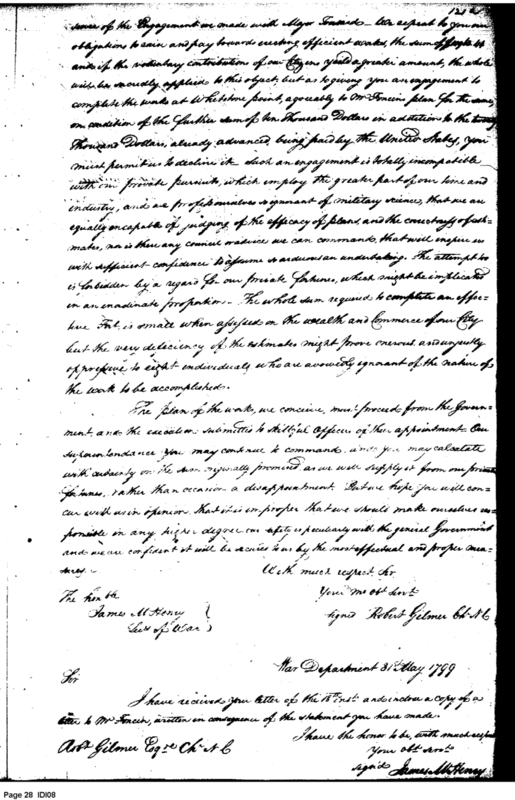 of the Engagement we made with Major Tousard — We repeat to you our
obligations to raise and pay towards erecting efficient works, the sum
and if the voluntary contributions of our Citizens yield a greater amount, the whole
will be applied to this object; but as to giving you an engagement to
complete the works at Whetstone point, agreeably to Mr Foncins plan for the same,
on condition of the further sum of ten thousand Dollars in addition to the twenty
thousand Dollars, already advanced being paid by the United States, you
must permit us to decline it. Such an engagement is totally incompatible
with our private pursuits, which employ the greater part of our time and
industry, and we profess ourselves so ignorant of military science, that we are
equally incapable of judging of the efficacy of plans, and the correctness of esti-
mates, nor is there any council or advice we can command, that will inspire us
with sufficient confidence to assume so arduous an undertaking. The attempt too
is forbidden by a regard for our private fortunes, which might be implicated
in an inordinate proportion. The whole sum required to complete an effec-
tive Fort, is small when assessed on the wealth and Commerce of our City
but the very deficiency of the estimates might prove onerous and unjustly
oppressive to eight individuals who are avowedly ignorant of the nature of
the work to be accomplished.
The plan of the works, we conceive, must proceed from the Govern-
ment, and the execution submitted to skilful Officers of their appointment. Our
superintendance you may continue to command, and you may calculate
with certainty on the sum originally promised, as we will supply it from our private
fortunes, rather than occasion a disappointment. But we hope you will con-
cur with us in opinion, that it is improper that we should make ourselves res-
ponsible in any higher degree, our safety is peculiarly with the general Government
and we are confident it will be secured to us by the most effectual and proper mea-
sures.
With much respect, Sir
Your mo obt Servt
signed Robert Gilmor Chn N C
The honble
James McHenry
Secy of War
War Department 31st May 1799
Sir
I have received your letter of the inst and inclose a copy of a
letter to Mr Foncin, written in consequence of the statement you have made.
I have the honor to be, with much respect
Your obt Servt
signed James McHenry
Robt Gilmor Esqre Chn N C
Page 28 IDI08